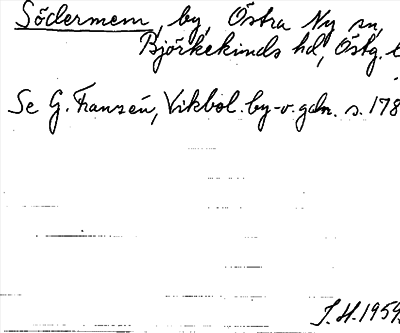 Södermem, by, Östra Ny sn,
Björkekinds hd, Östg. l
Se G. Franzén, Vikbol. by- o. gdn. s. 178
J.H. 1959.